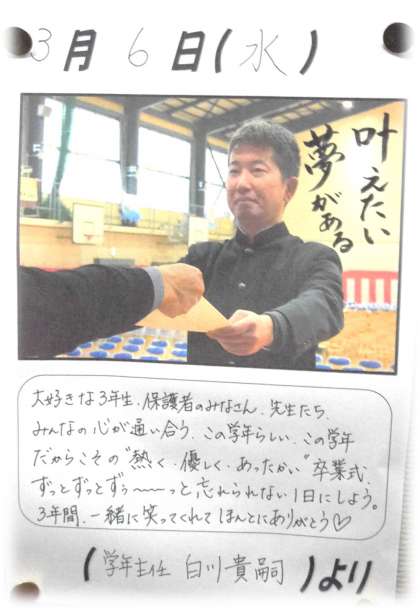 3月6日(水)
叶えたい
夢がある
大好きな3年生、保護者のみなさん、先生たち、
みんなの心が通い合う、この学年らしい、この学年
だからこその"熱く・優しく・あったかい"卒業式、
ずっとずっとずぅ〜〜〜っと忘れられない1日にしよう。
3年間、一緒に笑ってくれてほんとにありがとう♡
(学年主任 白川貴嗣)より